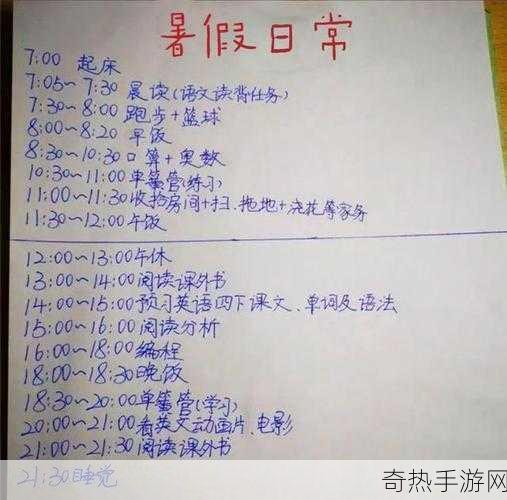 暑假日常
7:00 起床
7:05~7:30 晨读(语文读背任务)
7:30~8:00 跑步+篮球
8:00~8:20 早饭
8:30~10:30 口算+奥数
10:30~11:00 单簧管(练习)
11:00~11:30 收拾房间+扫、拖地+浇花等家务
11:30~12:00 午饭
12:00~13:00 午休
13:00~14:00 阅读课外书
14:00~15:00 预习英语四下课文、单词及语法
15:00~16:00 阅读分析
16:00~18:00 编程
18:00~18:30 晚饭
18:30~20:00 单簧管(学习)
20:00~21:00 看英文动画片、电影
21:00~21:30 阅读课外书
21:30 睡觉
奇热手游网